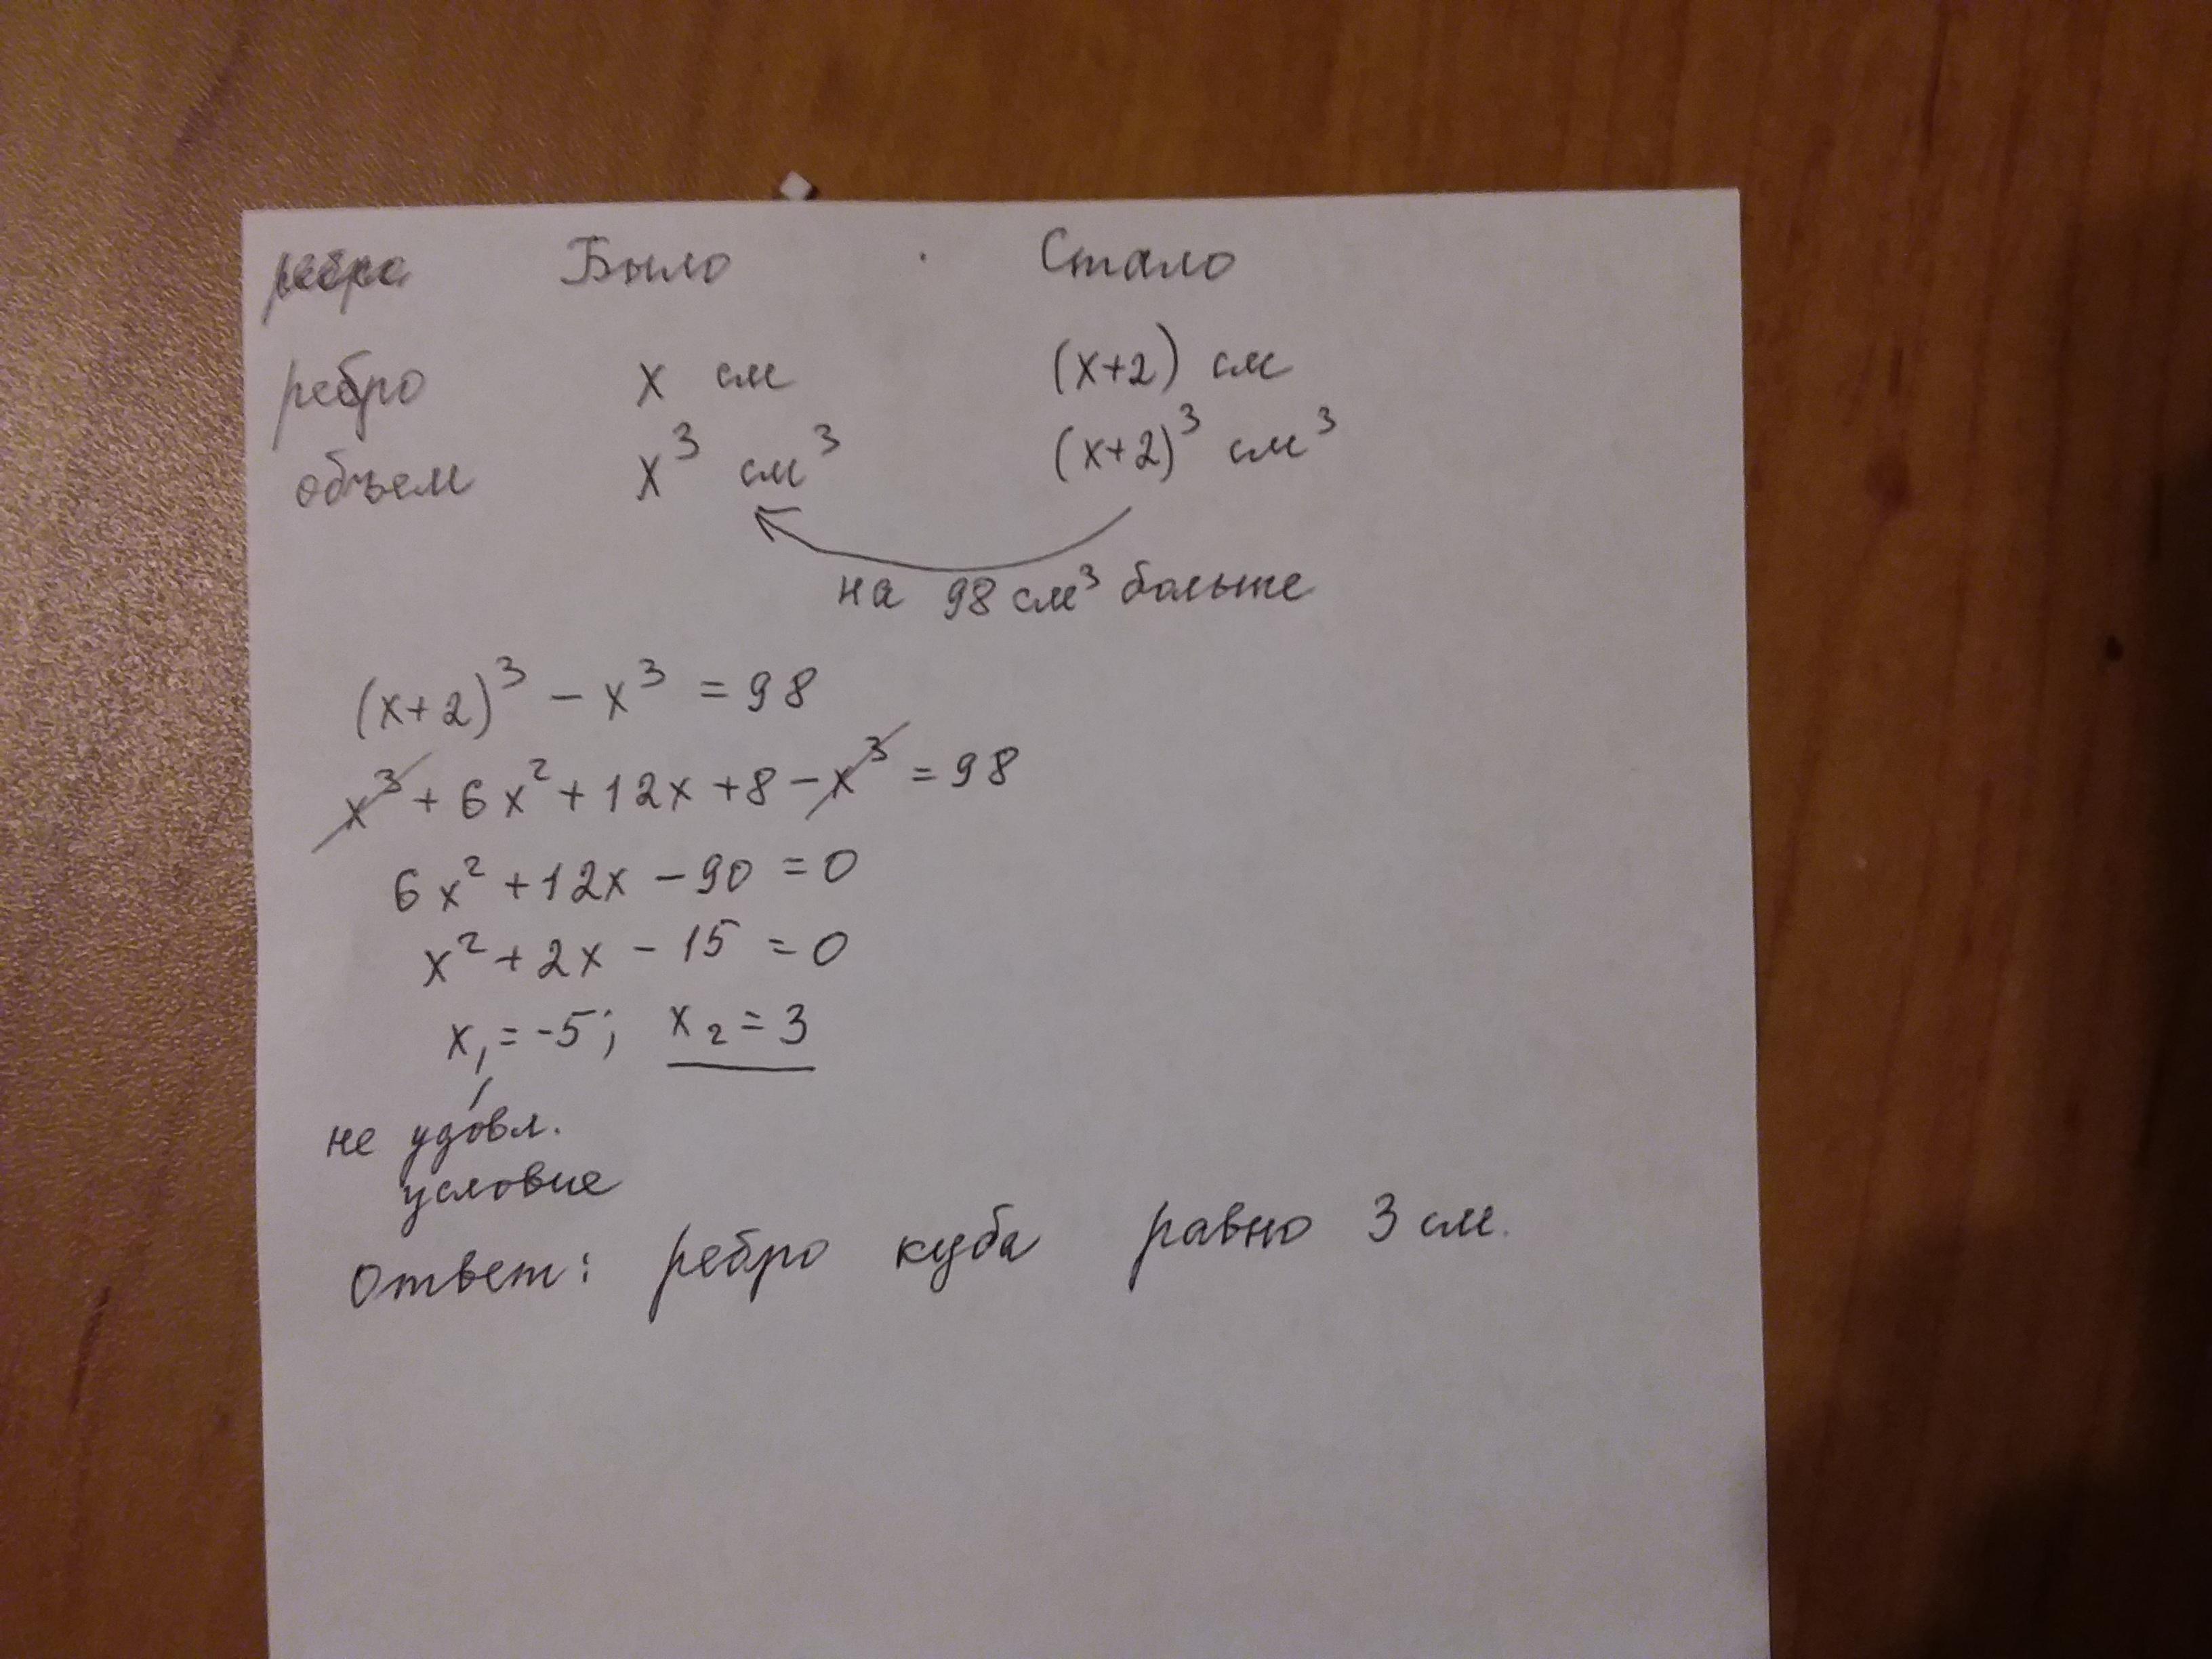 ребро Было Стало
ребро x см (x+2) см
объем x³ см³ (x+2)³ см³
на 98 см³ больше
(x+2)³ − x³ = 98
x³ + 6x² + 12x + 8 − x³ = 98
6x² + 12x − 90 = 0
x² + 2x − 15 = 0
x₁ = -5; x₂ = 3
не удовл.
условие
Ответ: ребро куба равно 3 см.